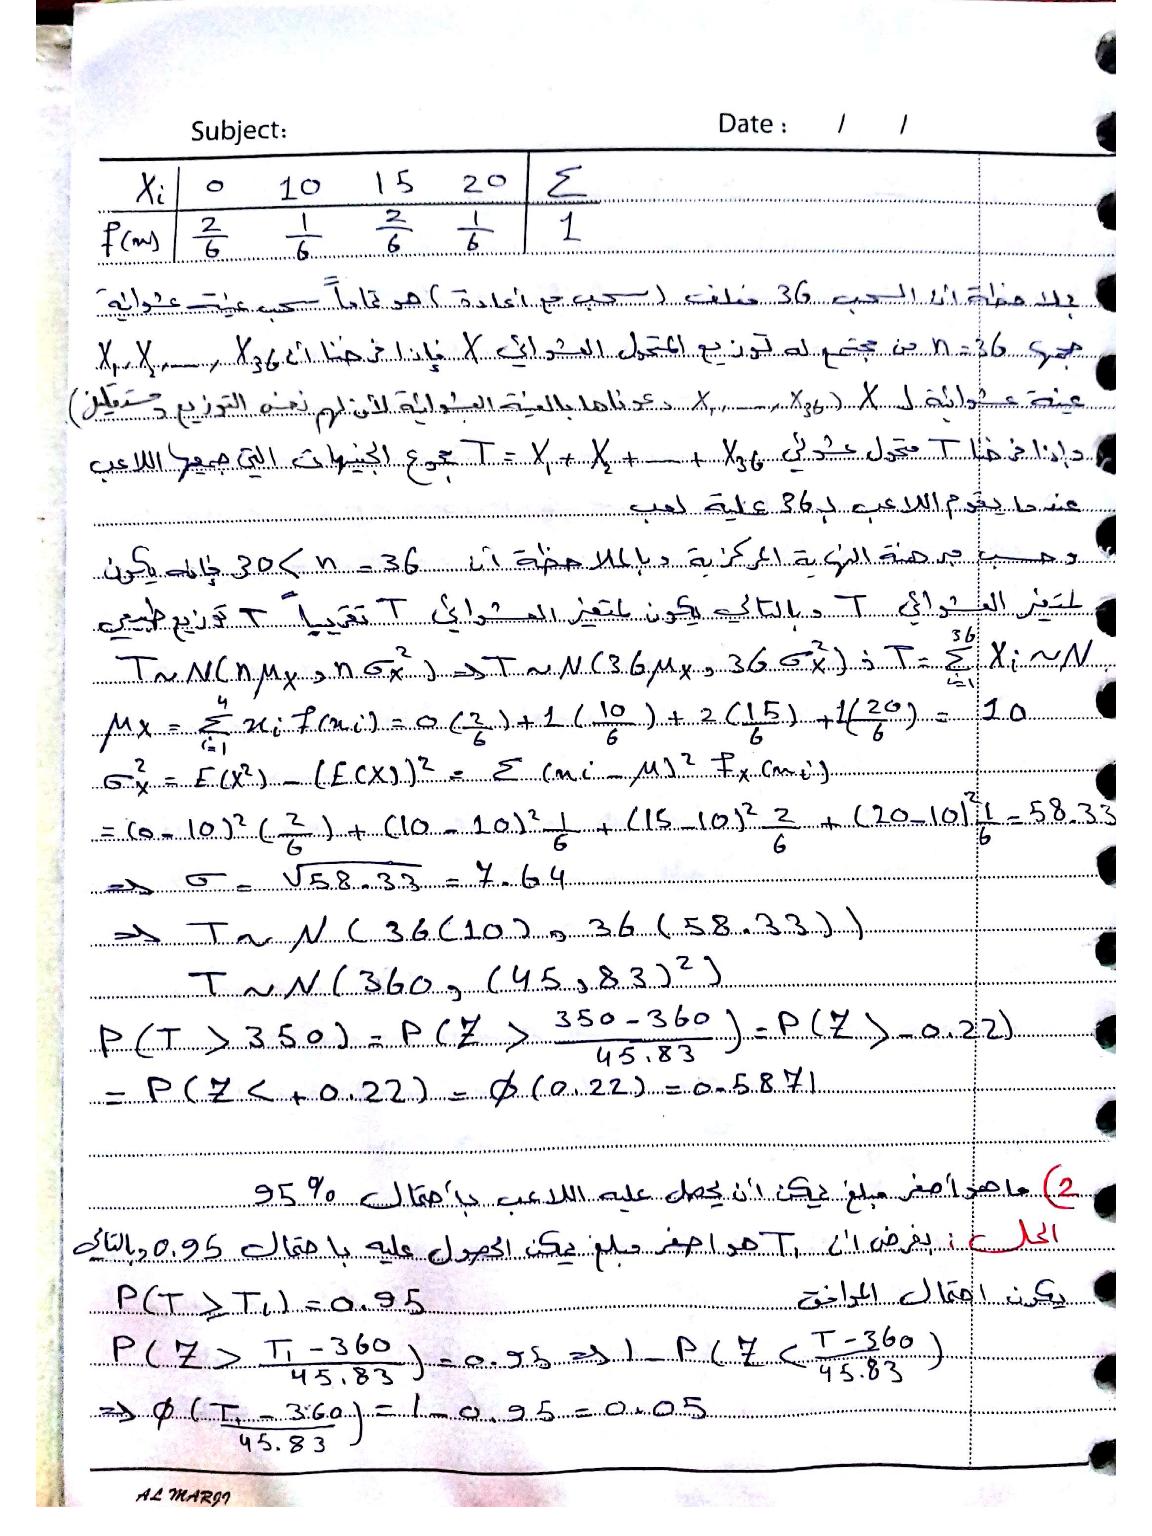 Subject: Date : / /
Xi 0 10 15 20 Σ
f(xi) 2/6 1/6 2/6 1/6 1
بملاحظة أن السحب 36 مغلف (سحب مع إعادة) هو تماماً سحب عينة عشوائية
حجمها n=36 من مجتمع له توزيع المتحول العشوائي X فإذا فرضنا أن X1, X2, ..., X36
عينة عشوائية لـ X (X1, ..., X36 دعوناها بالعينة العشوائية لأن لهم نفس التوزيع ومستقلين)
وإذا فرضنا T متحول عشوائي T = X1 + X2 + ... + X36 مجموع الجنيهات التي جمعها اللاعب
عندما يقوم اللاعب بـ 36 عملية لعب
وحسب مبرهنة النهاية المركزية وبالملاحظة أن 30 < n = 36 فإنه يكون
للمتغير العشوائي T وبالتالي يكون للمتغير العشوائي T تقريباً T توزيع طبيعي
T ~ N(nμx , nσx²) ⇒ T ~ N(36μx , 36σx²) ; T = Σ_{i=1}^{36} Xi ~ N
μx = Σ_{i=1}^{4} xi f(xi) = 0(2/6) + 1(10/6) + 2(15/6) + 1(20/6) = 10
σx² = E(X²) − (E(X))² = Σ (xi − μ)² fx(xi)
= (0−10)² (2/6) + (10−10)² 1/6 + (15−10)² 2/6 + (20−10)² 1/6 = 58.33
⇒ σ = √58.33 = 7.64
⇒ T ~ N(36(10) , 36(58.33))
T ~ N(360 , (45,83)²)
P(T > 350) = P(Z > 350−360/45.83) = P(Z > −0.22)
= P(Z < +0.22) = ϕ(0.22) = 0.5871
2) ما هو أصغر مبلغ يمكن أن يحصل عليه اللاعب باحتمال 95%
الحل : بفرض أن T1 هو أصغر مبلغ يمكن الحصول عليه باحتمال 0.95 وبالتالي
يكون احتمال الموافق P(T ≥ T1) = 0.95
P(Z > T1−360/45.83) = 0.95 ⇒ 1 − P(Z < T−360/45.83)
⇒ ϕ(T1−360/45.83) = 1−0.95 = 0.05
AL MARJI